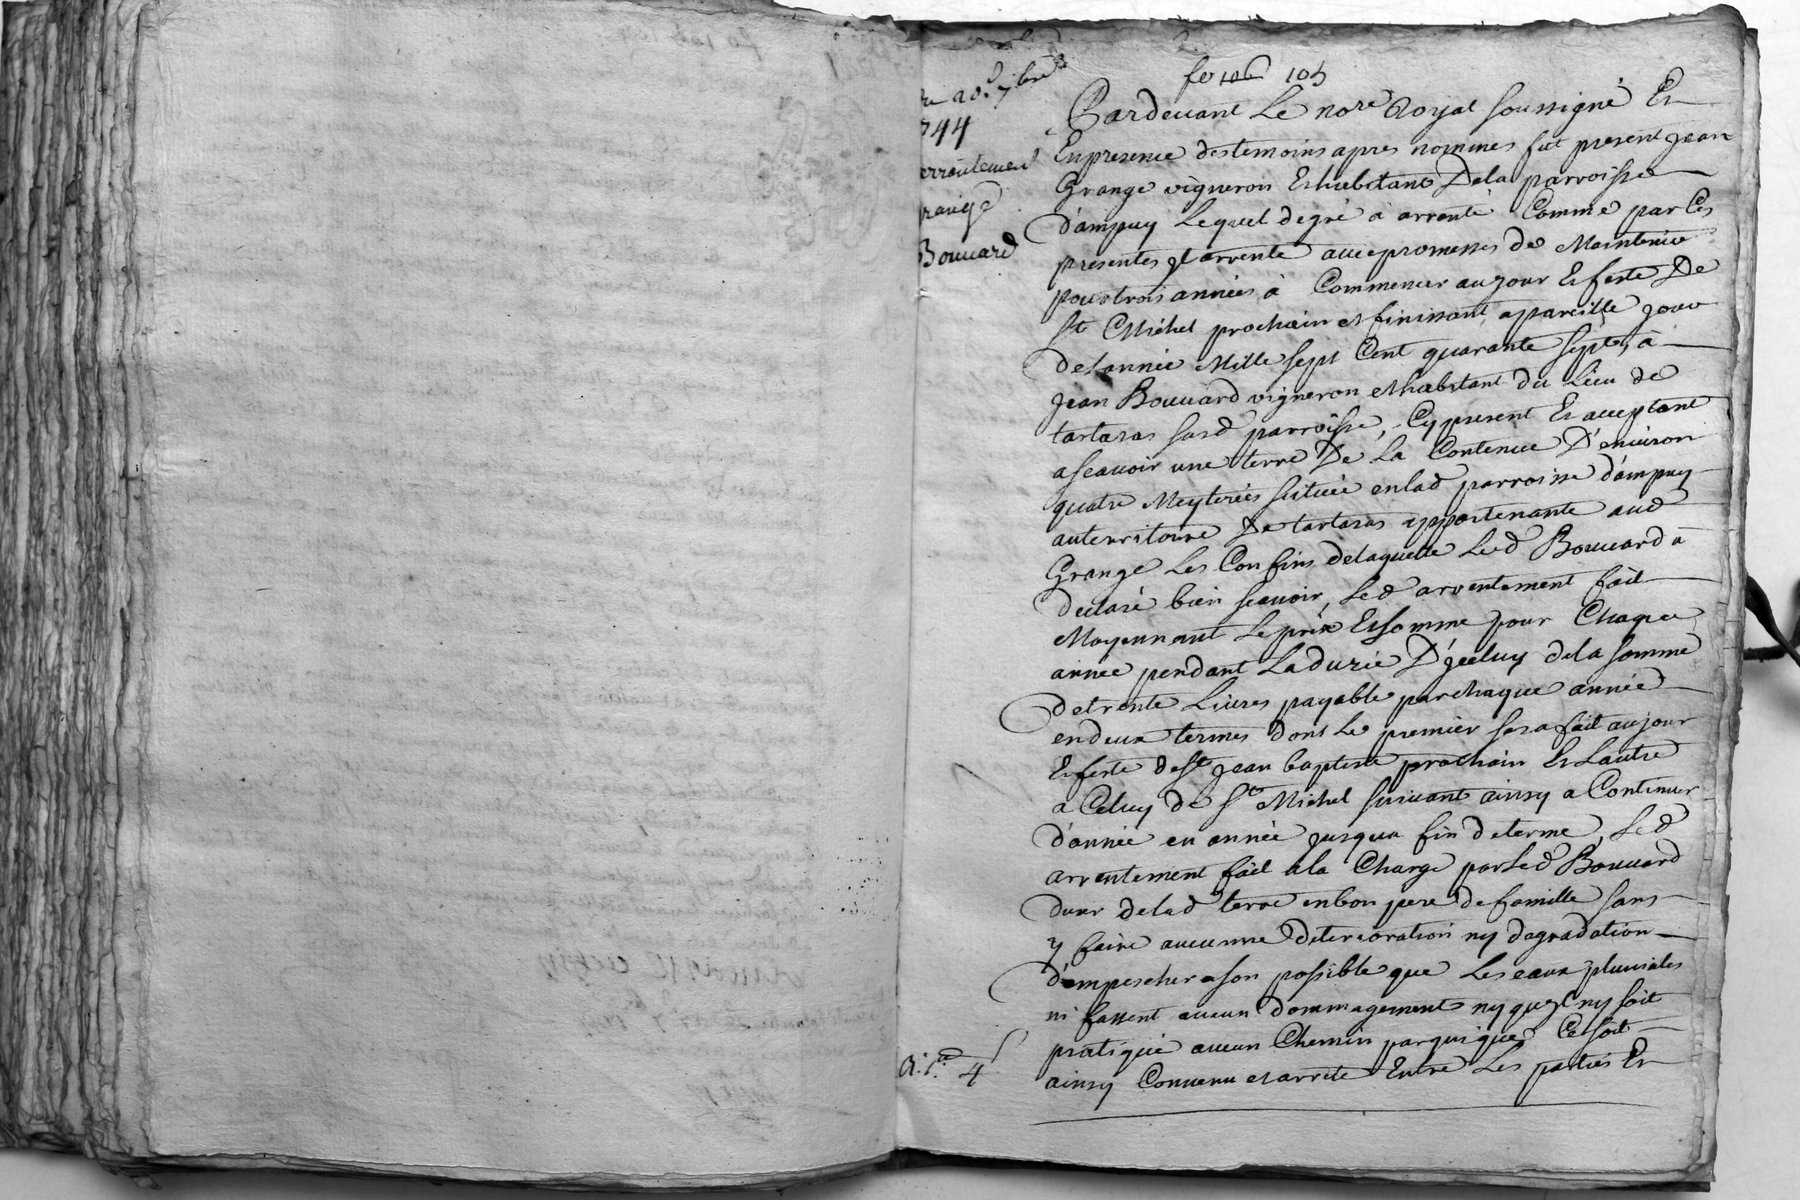 20.e 7bre
744
arrentement
Grange
Bouuard
fo 105
Pardeuant Le nore Royal soussigné Et
En presence des temoins apres nommes fut present Jean
Grange vigneron Et habitant De la parroisse
D'ampuy Lequel de gré à arrenté Comme par Ces
presentes Jl arrente auec promesses de Maintenir
pour trois années à Commencer au Jour Et feste De
St Michel prochain et finissant a pareille Jour
de l'année Mille sept Cent quarante sept, à
Jean Bouuard vigneron et habitant du Lieu de
tartaras susd parroisse, Cy present Et acceptant
a scauoir une terre De La Contenue D'enuiron
quatre Meyterées scituée en lad parroisse d'ampuy
au territoire De tartaras appartenante aud
Grange Les Confins de laquelle Led Bouuard à
declaré bien scauoir, Led arrentement fait
Moyennant Le prix Et somme pour Chaque
année pendant La durée D'Jceluy de la somme
de trente Liures payable par chaque année
en deux termes dont Le premier sera fait au jour
Et feste de St Jean baptiste prochain Et L'autre
a Celuy de St Michel suiuant ainsy a Continuer
d'année en année jusqua fin de terme, Led
arrentement fait a la Charge par Led Bouuard
d'user de lad terre en bon pere de famille sans
y faire aucunne deterioration ny degradation
d'empescher a son possible que Les eaux pluuiales
ni fassent aucun dommagement ny qu'Jl ny soit
pratiqué aucun Chemin par qui que Ce soit
ainsy Conuenu et arreté Entre Les parties Et